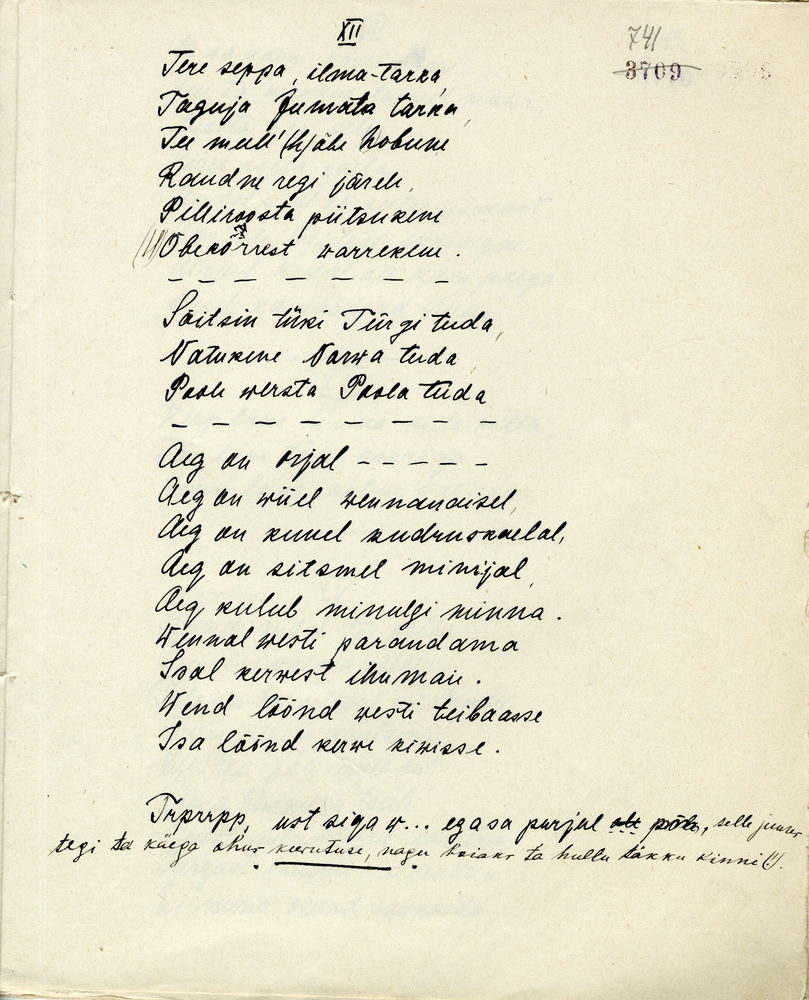 XII
741
3709
Tere seppa, ilma-tarka,
Taguja Jumala tarka,
Tee mull' (h)õbe hobune
Raudne regi järele,
Pilliroosta piitsukene
Õbekõrrest warrekene.
— — — — — — — —
Sõitsin tüki Türgi tuda,
Natukene Narwa tuda
Poole wersta Poola tuda
— — — — — — — —
Aeg on orjal — — — — —
Aeg on wiiel wennanaisel,
Aeg on kuuel kudruskaelal,
Aeg on seitsmel minijal,
Aeg kulub minulgi minna.
Wennal westi parandama
Isal kerwest ihumaie.
Wend lõõnd westi teibaasse
Isa lõõnd kerwe kiwisse.
Trprrpp, ust siga w... ega sa purjul põle, selle juures
tegi ta käega õhus keerutuse, nagu ta hullu täkku kinni (!).